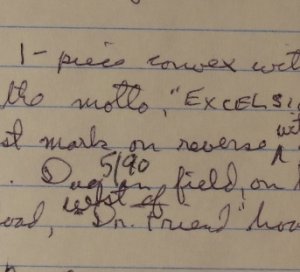 1-piece convex wit
the motto, "EXCELSI
st mark on reverse wit
. Dug 5/90 in field, on
west of
oad, "Dr. Friend" hou